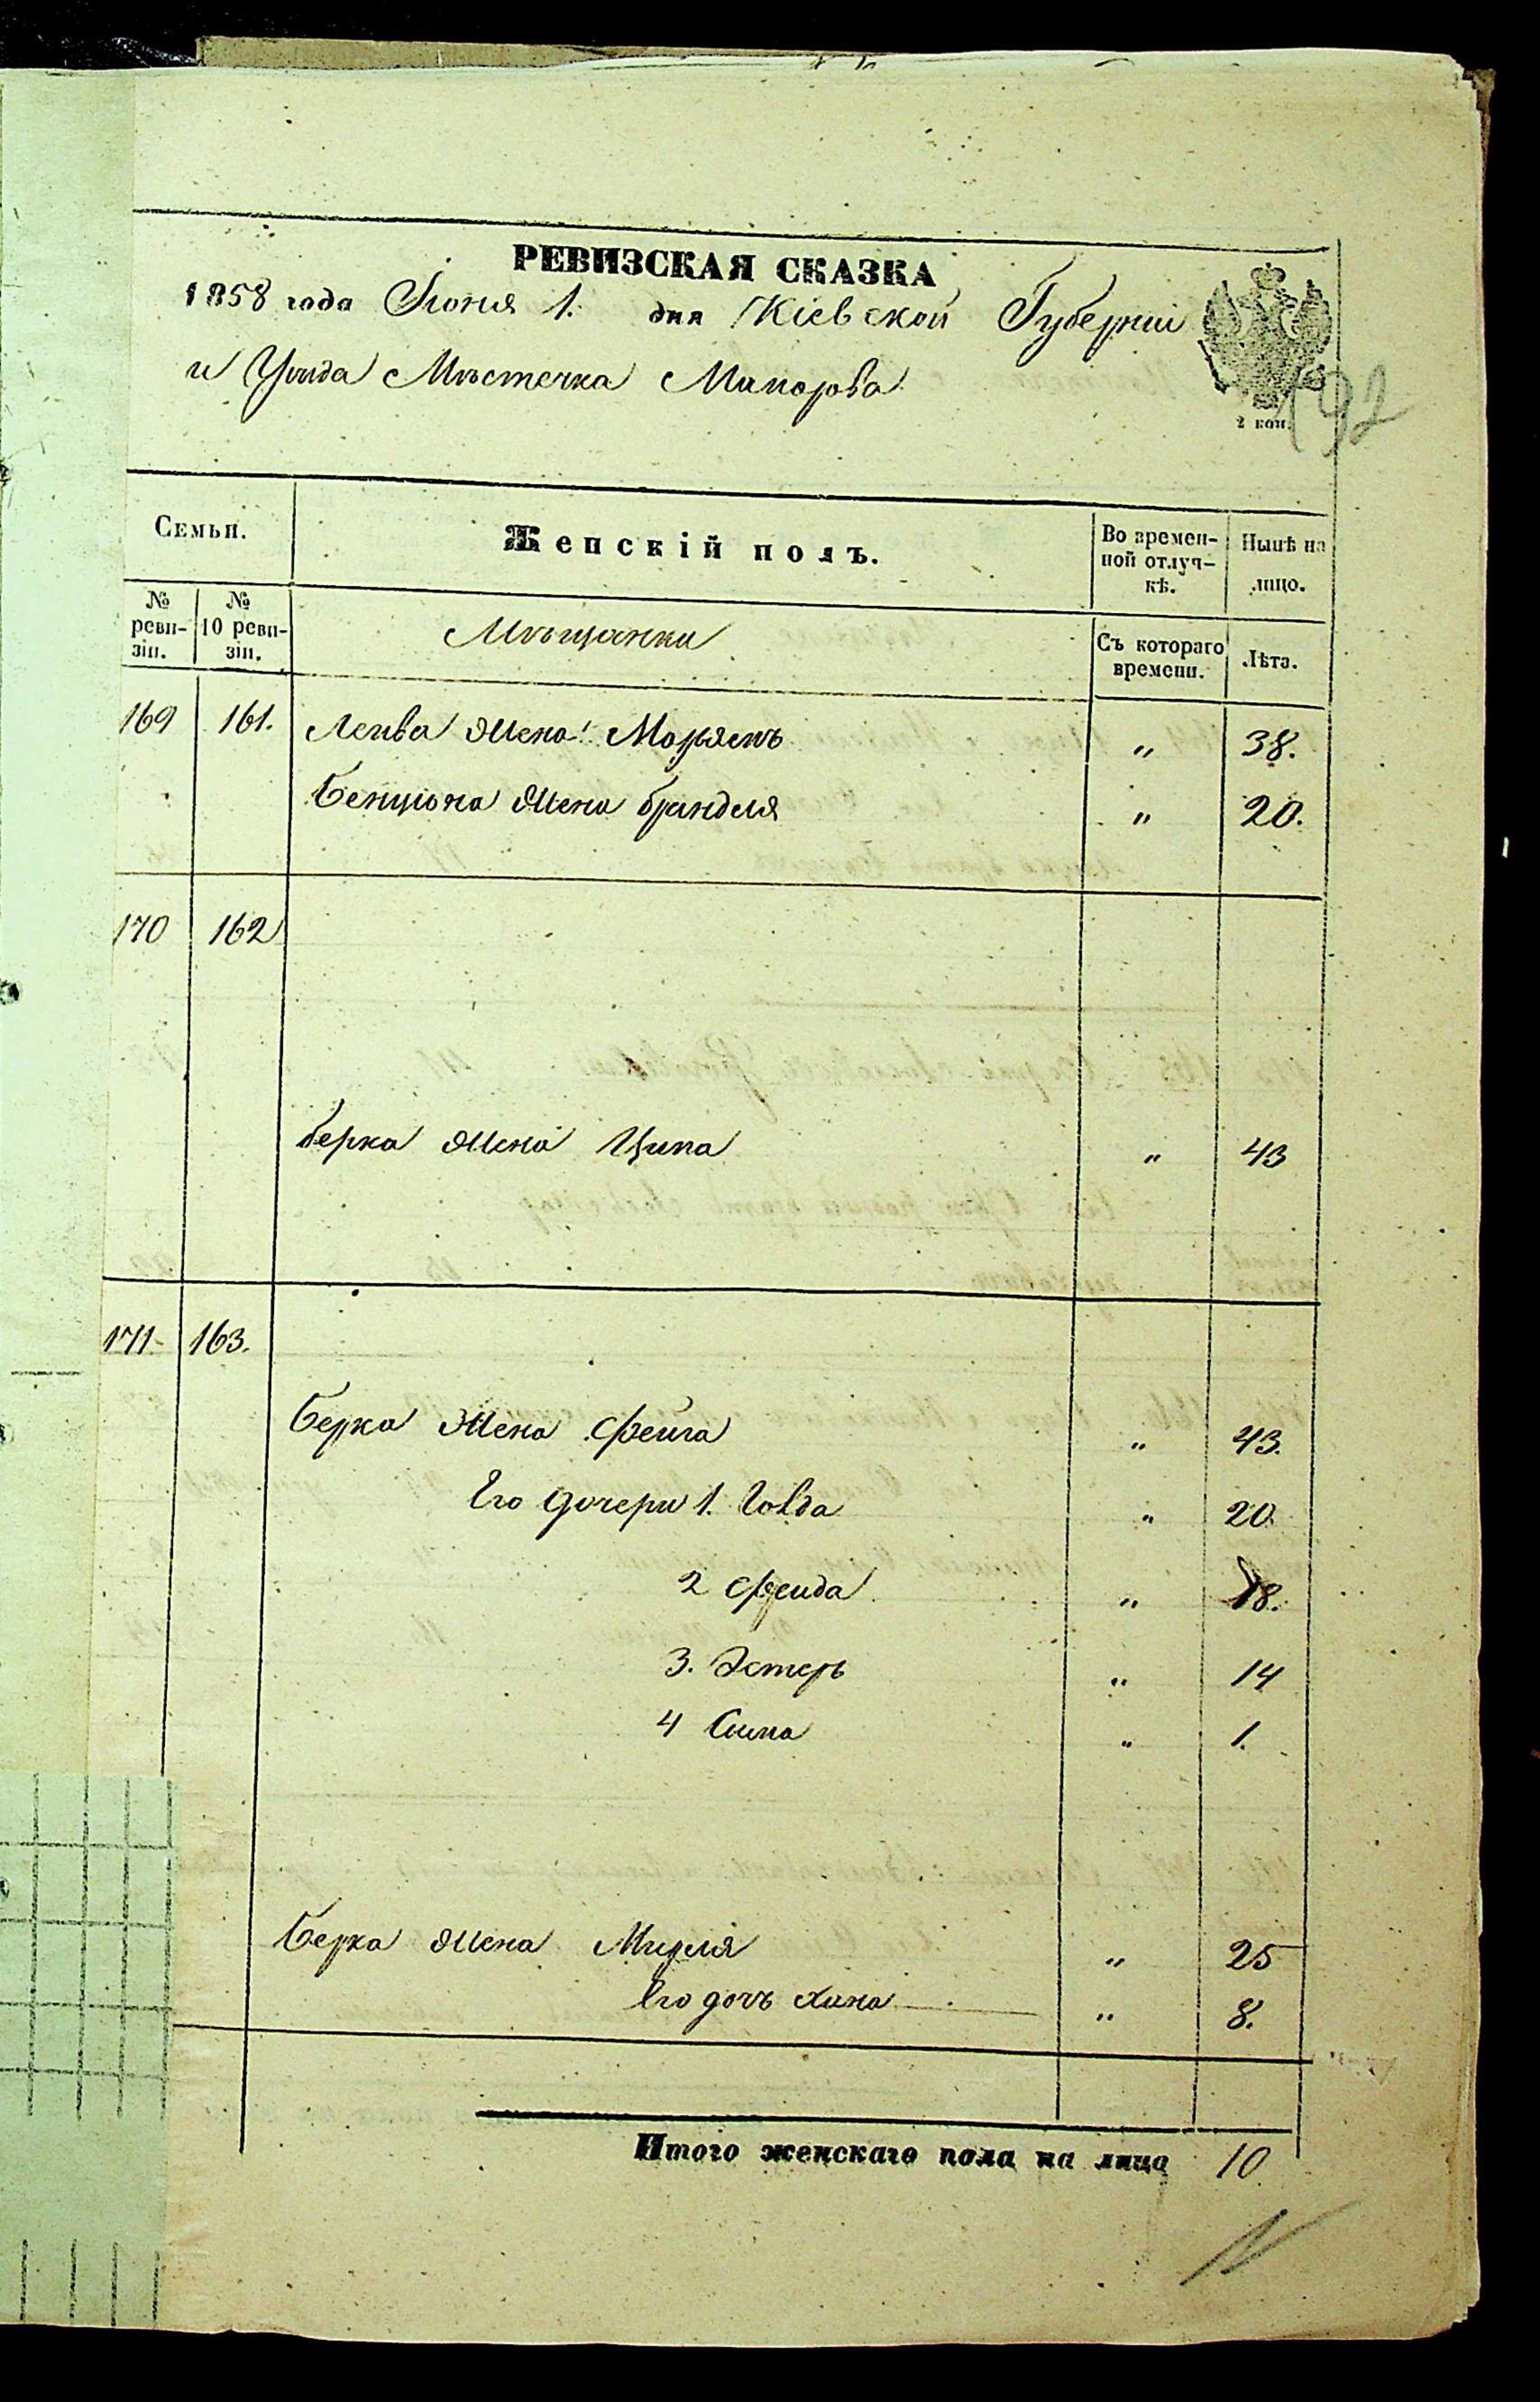 РЕВИЗСКАЯ СКАЗКА
1858 года Іюня 1. дня Кіевской Губерніи
и Уѣзда Мѣстечка Макарова
2 коп.
192
Семьи.
Женскій полъ.
Во времен-
ной отлуч-
кѣ.
Нынѣ на
лицо.
№
реви-
зіи.
№
10 реви-
зіи.
Мѣщанки
Съ котораго
времени.
Лѣта.
169 161. Лейва жена Марьямъ " 38.
Бенціона жена брандля " 20.
170 162
берка жена Ципа " 43
171 163.
Берка жена Фейга " 43.
Его дочери 1. Голда " 20.
2 Фрейда " 18.
3. Эстеръ " 14
4 Сима " 1.
Берка жена Мирля " 25
Его дочь хана " 8.
Итого женскаго пола на лицо 10